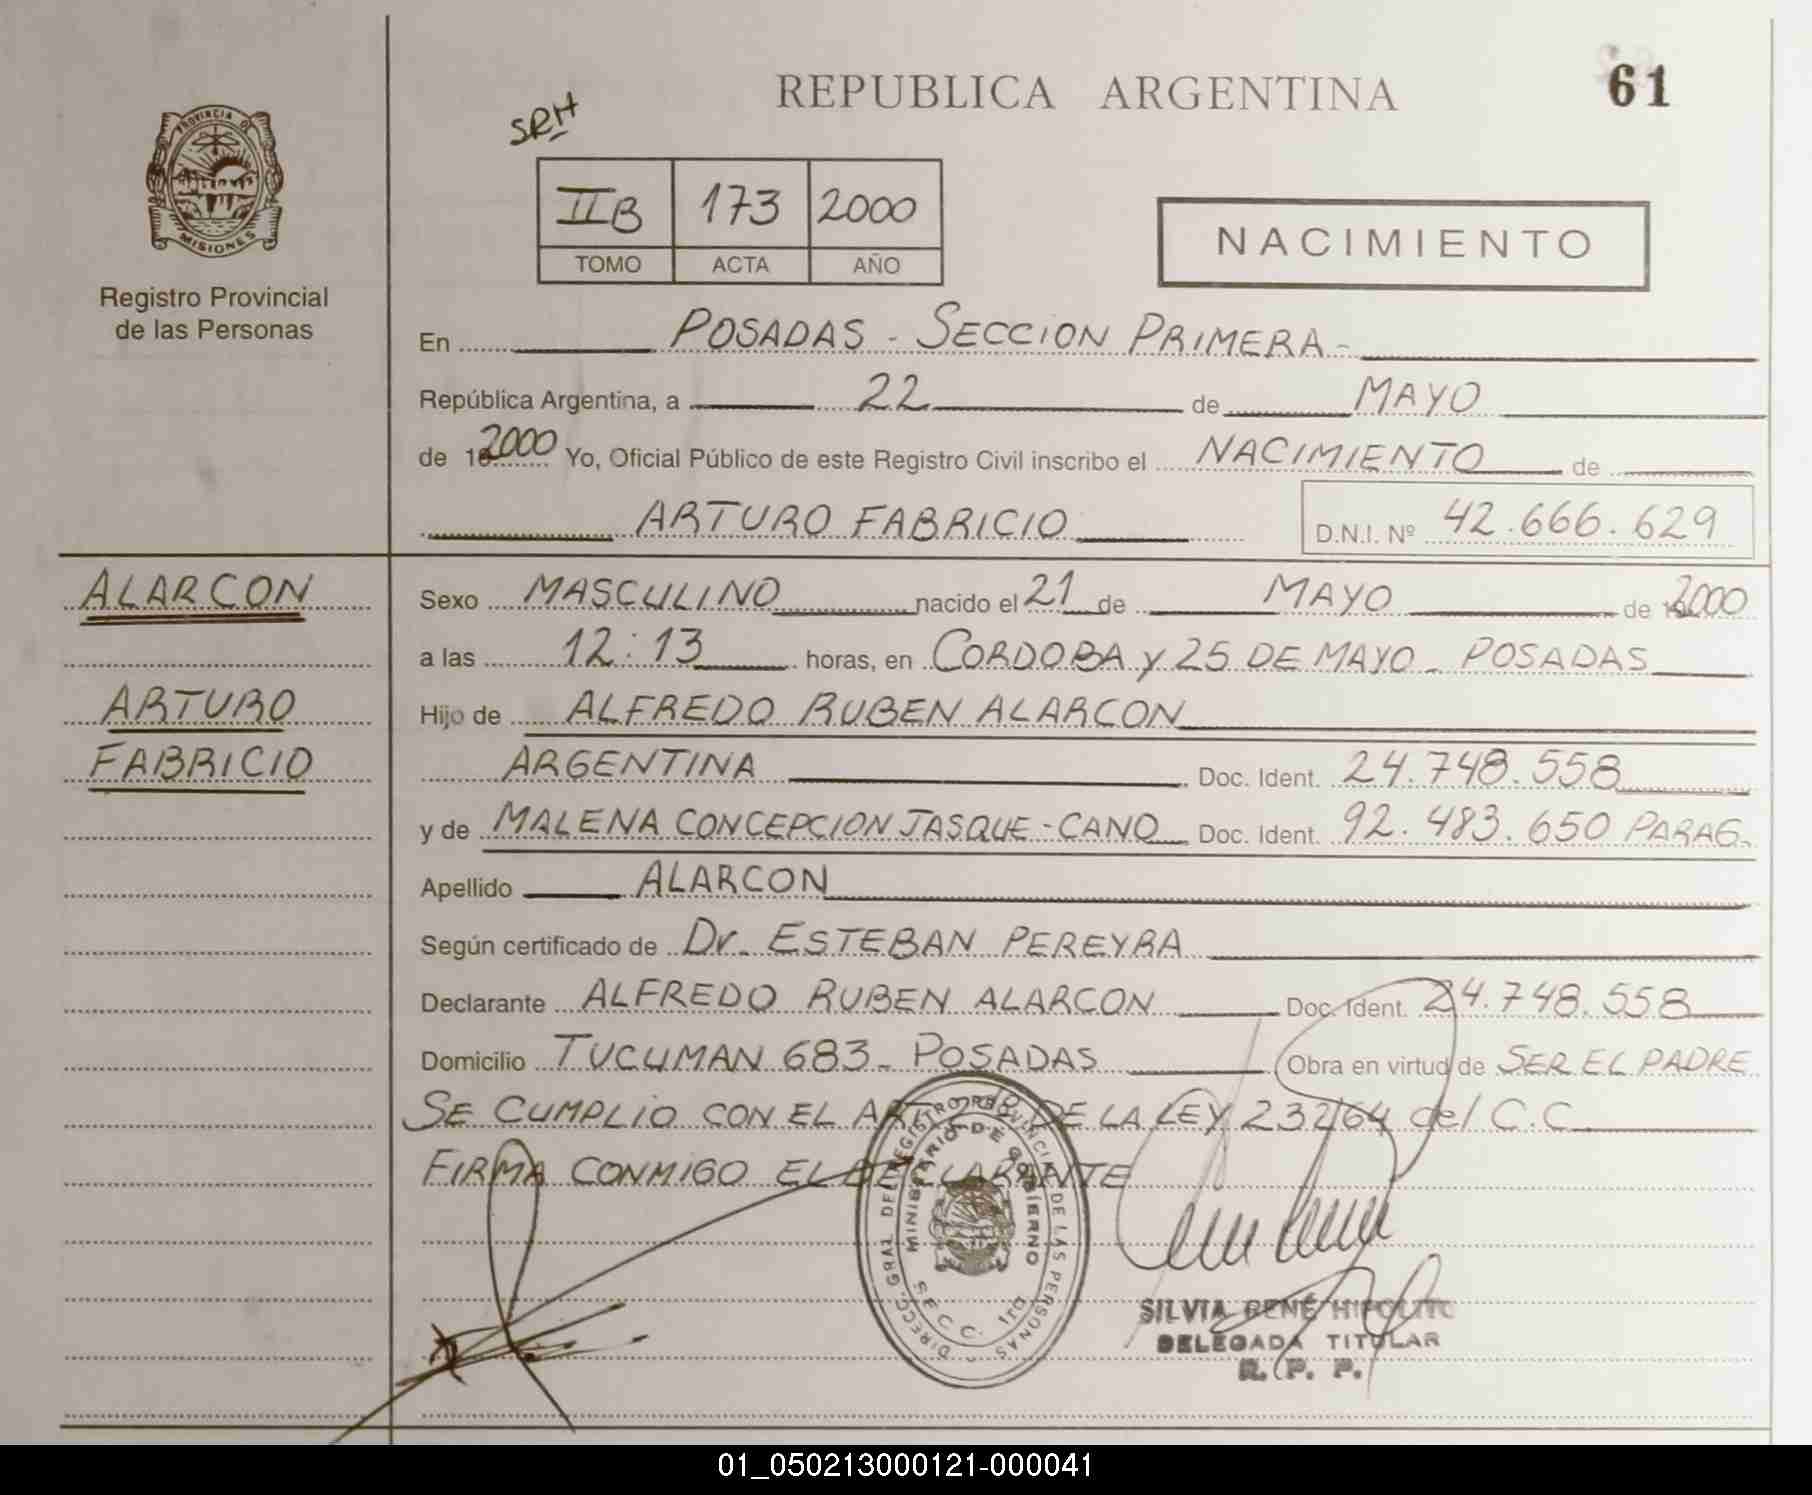 REPUBLICA ARGENTINA
61
SRH
PROVINCIA DE
MISIONES
Registro Provincial
de las Personas
IIB 173 2000
TOMO ACTA AÑO
NACIMIENTO
En POSADAS - SECCION PRIMERA-
República Argentina, a 22 de MAYO
de 2000 Yo, Oficial Público de este Registro Civil inscribo el NACIMIENTO de
ARTURO FABRICIO D.N.I. Nº 42.666.629
ALARCON
ARTURO
FABRICIO
Sexo MASCULINO nacido el 21 de MAYO de 2000
a las 12:13 horas, en CORDOBA y 25 DE MAYO - POSADAS
Hijo de ALFREDO RUBEN ALARCON
ARGENTINA Doc. Ident. 24.748.558
y de MALENA CONCEPCION JASQUE-CANO Doc. Ident. 92.483.650 PARAG.
Apellido ALARCON
Según certificado de Dr. ESTEBAN PEREYRA
Declarante ALFREDO RUBEN ALARCON Doc. Ident. 24.748.558
Domicilio TUCUMAN 683- POSADAS Obra en virtud de SER EL PADRE
SE CUMPLIO CON EL ART. DE LA LEY 232/64 del C.C.
FIRMA CONMIGO EL DECLARANTE
DIRECC. GRAL. DEL REGISTRO PROVINCIAL DE LAS PERSONAS
MINISTERIO DE GOBIERNO
SECC. 1ra
SILVIA RENÉ HIPOLITO
DELEGADA TITULAR
R. P. P.
01_050213000121-000041